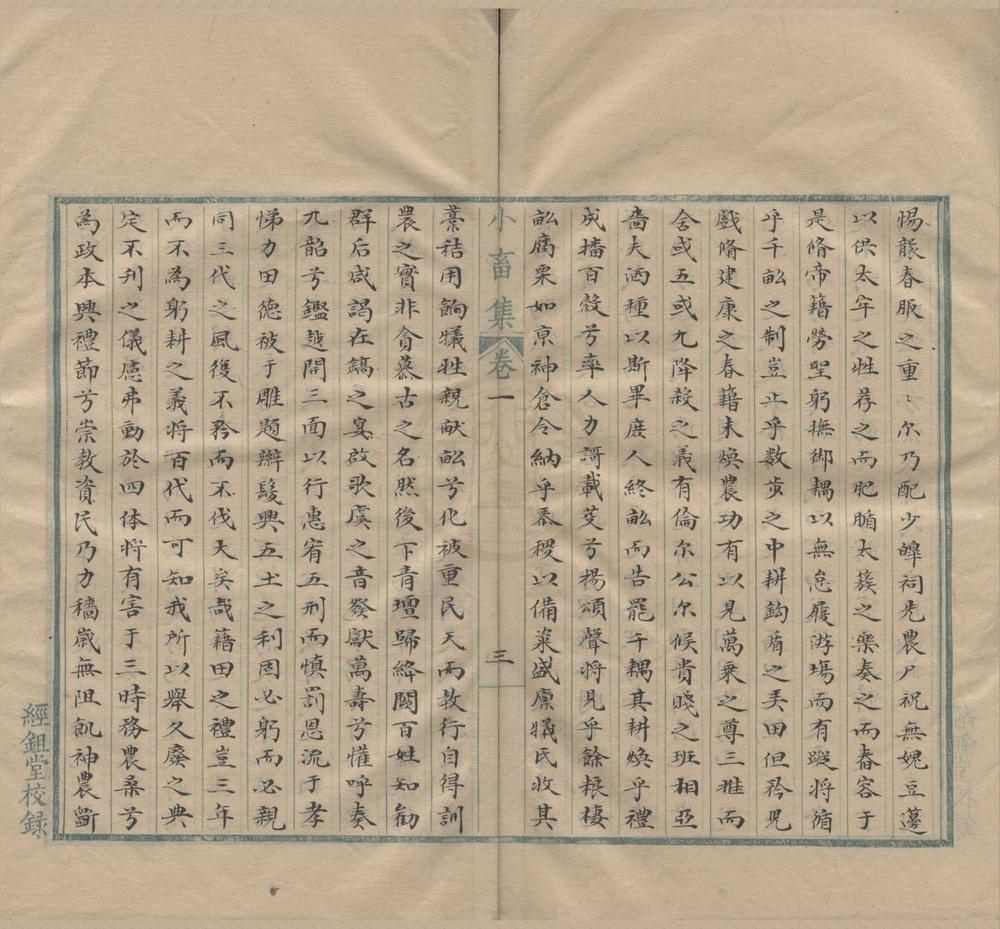 惕襲春服之重〻尔乃配少皞祠先農尸祝無媿豆籩
以供太牢之牲荐之而肥腯太簇之樂奏之而舂容于
是脩帝籍勞聖躬撫御耦以無怠履游場而有蹤将循
乎千畝之制豈止乎数步之中耕鉤盾之弄田但矜児
戲脩建康之春籍未煥農功有以見萬乘之尊三推而
舍或五或九降殺之義有倫尔公尔候貴賤之班相亞
嗇夫洒種以斯畢庶人終畝而告罷千耦其耕煥乎禮
成播百穀兮率人力謌載芟兮揚頌聲将見乎餘粮棲
畝腐粟如京神倉令納乎黍稷以備粢盛廪犧氏收其
小畜集 卷一 三
藁秸用餉犠牲親献畝兮化被重民天而教行自得訓
農之實非貪慕古之名然後下青壇歸絳闕百姓知勧
群后咸謁在鎬之宴啟歌虞之音發獻萬壽兮懽呼奏
九韶兮鑑越開三面以行惠宥五刑而慎罰恩流于孝
悌力田徳被于雕題辮髮興五土之利固必躬而必親
同三代之風復不矜而不伐大矣哉藉田之禮豈三年
而不為躬耕之義将百代而可知我所以舉久廢之典
定不刋之儀慮弗動於四体将有害于三時務農桑兮
為政本興禮節兮崇教資民乃力穡歳無阻飢神農斵
經鉏堂校録